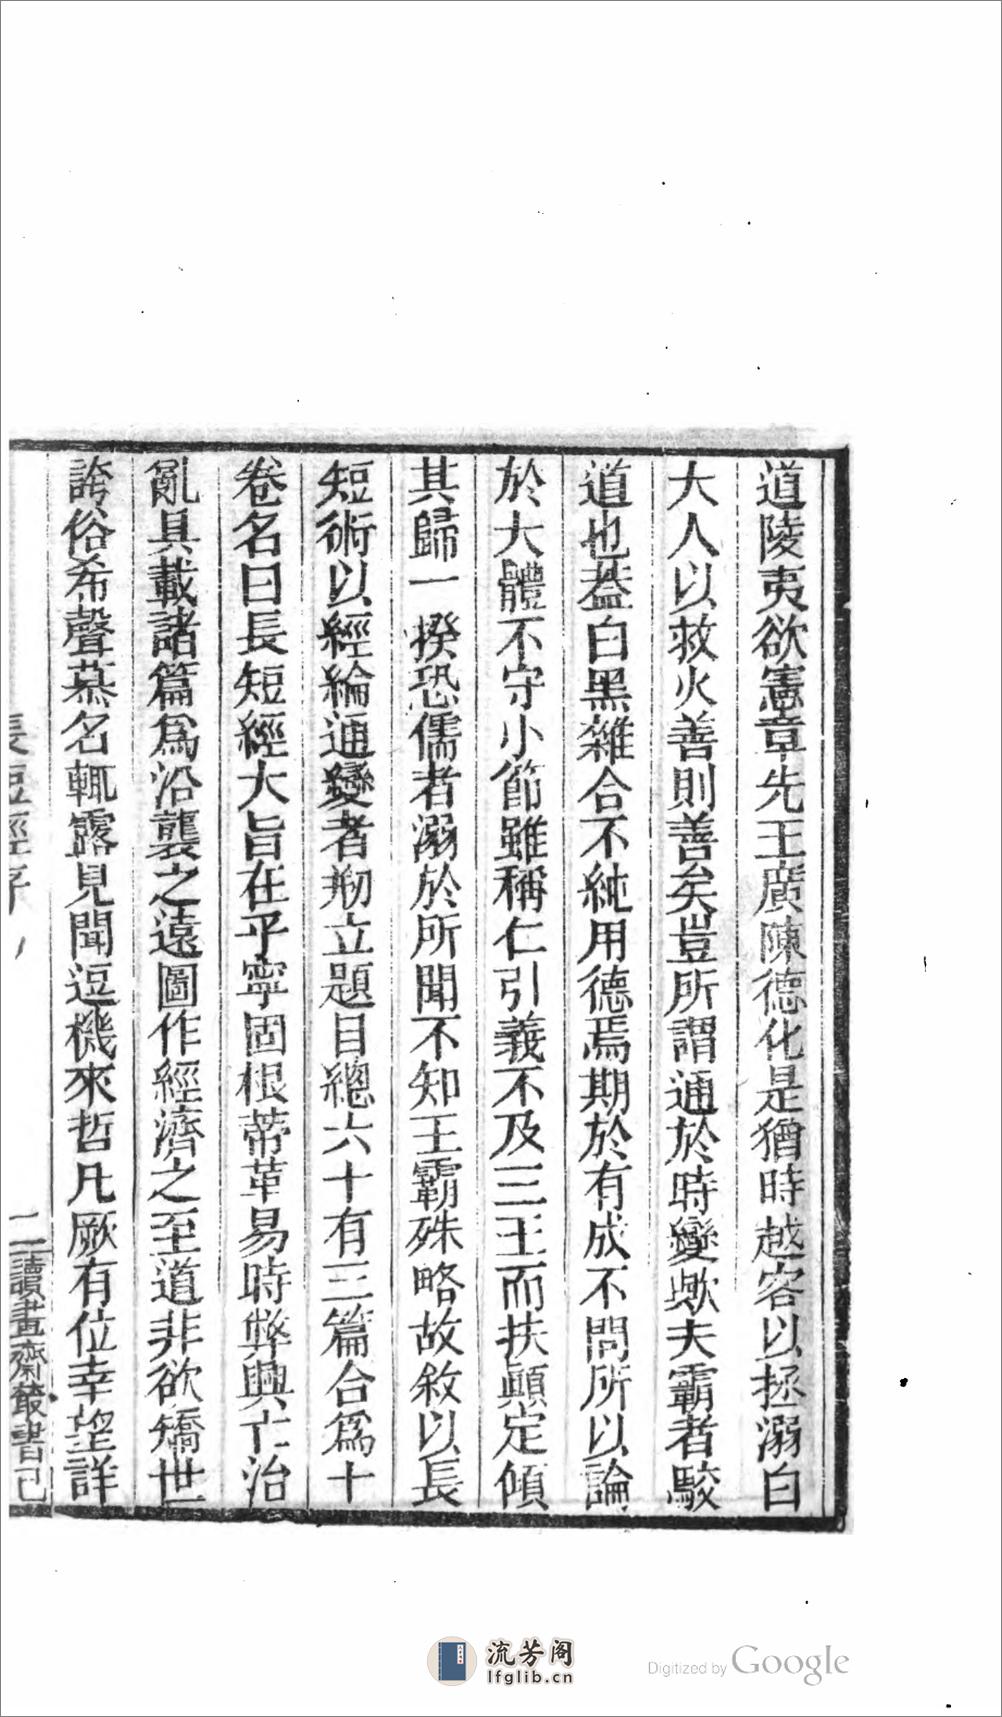 道陵夷欲憲章先王廣陳德化是猶時越客以拯溺白
大人以救火善則善矣豈所謂通於時變歟夫霸者駁
道也葢白黑雜合不純用德焉期於有成不問所以論
於大體不守小節雖稱仁引義不及三王而扶顚定傾
其歸一揆恐儒者溺於所聞不知王霸殊略故敘以長
短術以經綸通變者刱立題目總六十有三篇合爲十
卷名曰長短經大旨在乎寧固根蔕革易時弊興亡治
亂具載諸篇爲沿襲之遠圖作經濟之至道非欲矯世
誇俗希聲慕名輒露見聞逗機來哲凡厥有位幸望詳
長短經序
二 讀畫齋叢書己
流芳阁
lfglib.cn
Digitized by Google